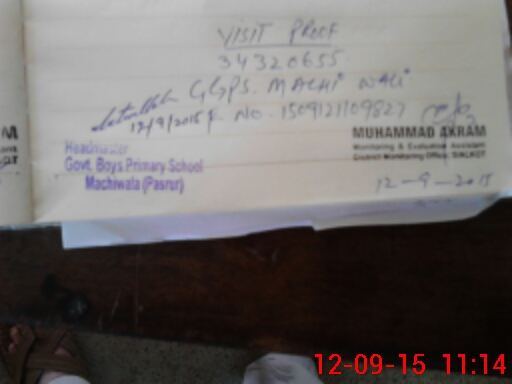 VISIT PROOF
34320655
GGPS. MACHI WALI
12/9/2015 F. No. 1509121109827
MUHAMMAD AKRAM
Monitoring & Evaluation Assistant
District Monitoring Office, SIALKOT
Headmaster
Govt. Boys Primary School
Machiwala (Pasrur)
12-9-2015
12-09-15 11:14